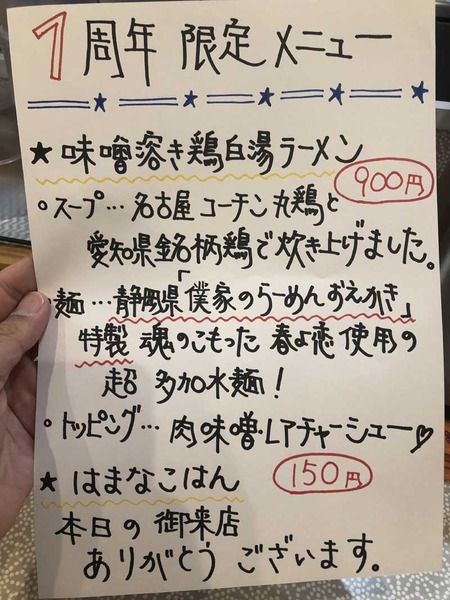 1周年 限定メニュー
★味噌溶き鶏白湯ラーメン
900円
。スープ…名古屋コーチン丸鶏と
愛知県銘柄鶏で炊き上げました。
。麺…静岡県「僕家のらーめんおえかき」
特製 魂のこもった 春よ恋使用の
超 多加水麺!
。トッピング…肉味噌・レアチャーシュー♡
★はまなこはん
150円
本日の御来店
ありがとう ございます。